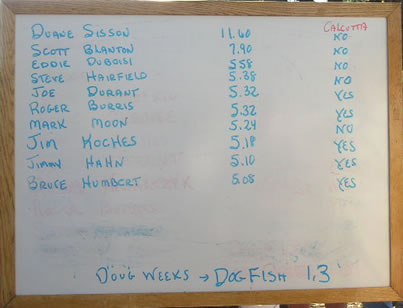 CALCUTTA
DUANE SISSON 11.60 NO
SCOTT BLANTON 7.90 NO
EDDIE DUBOISI 5.58 NO
STEVE HAIRFIELD 5.38 NO
JOE DURANT 5.32 YES
ROGER BURRIS 5.32 YES
MARK MOON 5.24 NO
JIM KOCHES 5.18 YES
JIMMY HAHN 5.10 YES
BRUCE HUMBERT 5.08 YES
DOUG WEEKS → DOGFISH 1.3